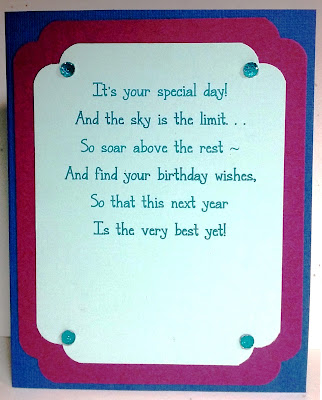 It's your special day!
And the sky is the limit. . .
So soar above the rest ~
And find your birthday wishes,
So that this next year
Is the very best yet!